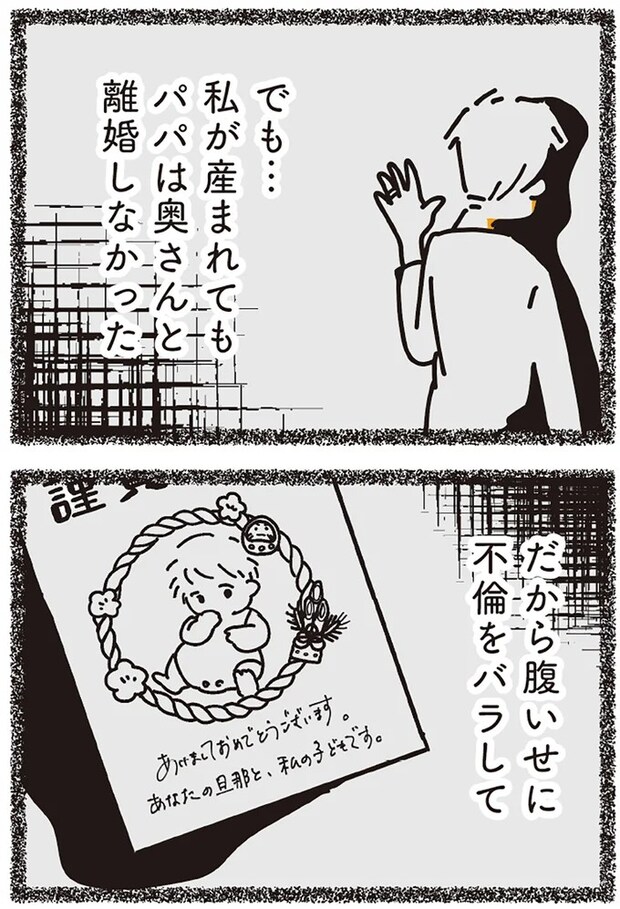 でも…
私が産まれても
パパは奥さんと
離婚しなかった
だから腹いせに
不倫をバラして
謹賀
あけましておめでとうございます。
あなたの旦那と、私の子どもです。